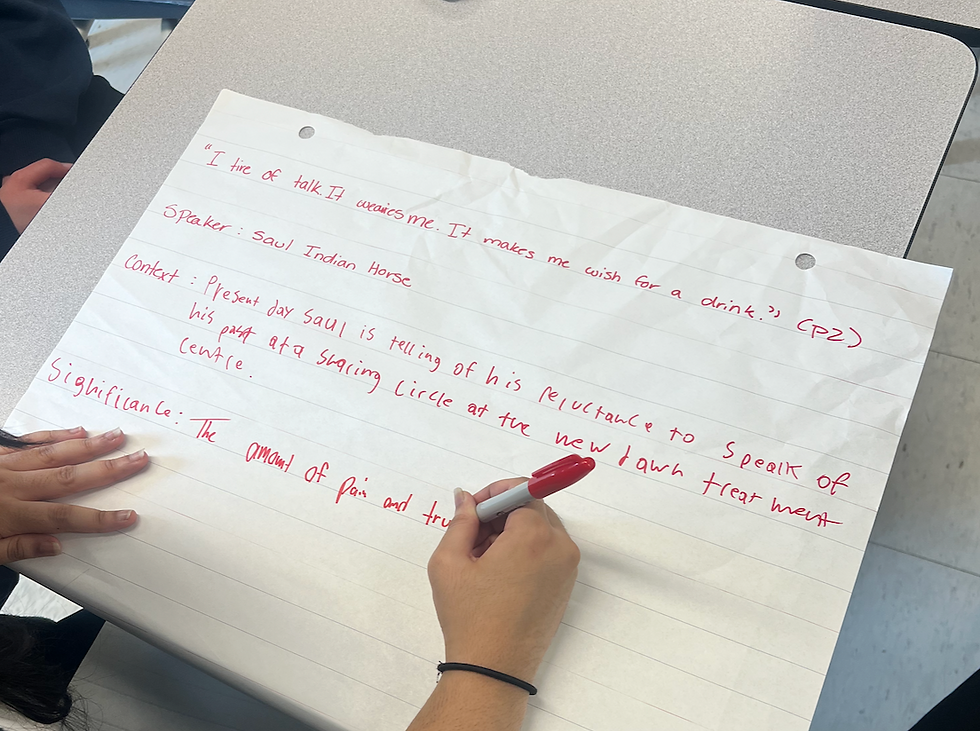 "I tire of talk. It wearies me. It makes me wish for a drink." (P2)
Speaker: Saul Indian Horse
Context: Present day Saul is telling of his reluctance to speak of
his past at a sharing circle at the new dawn treatment
centre.
Significance: The amount of pain and tru